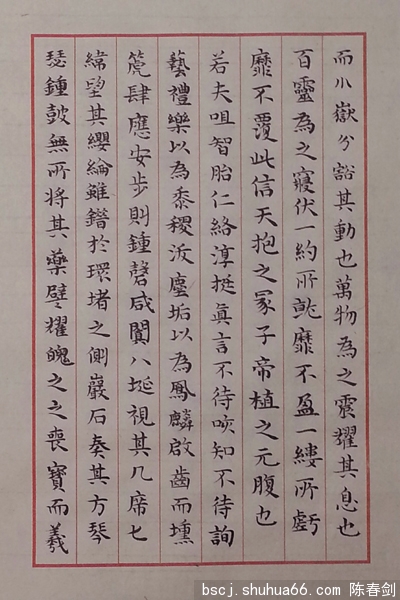 而小嶽分谿其動也萬物為之震耀其息也
百靈為之寢伏一約所就靡不盈一縷所虧
靡不覆此信天抱之冢子帝植之元腹也
若夫咀智胎仁絡淳挺真言不待唊知不待詢
藝禮樂以為黍稷泼塵垢以為鳳麟啟齒而壎
篪肆應安步則鍾磬咸闐八埏視其几席七
緯望其纓綸雖鐕於環堵之側巖石奏其方琴
瑟鍾皷無所将其藥躄耀魄之之喪寶而羲
bscj.shuhua66.com 陈春剑